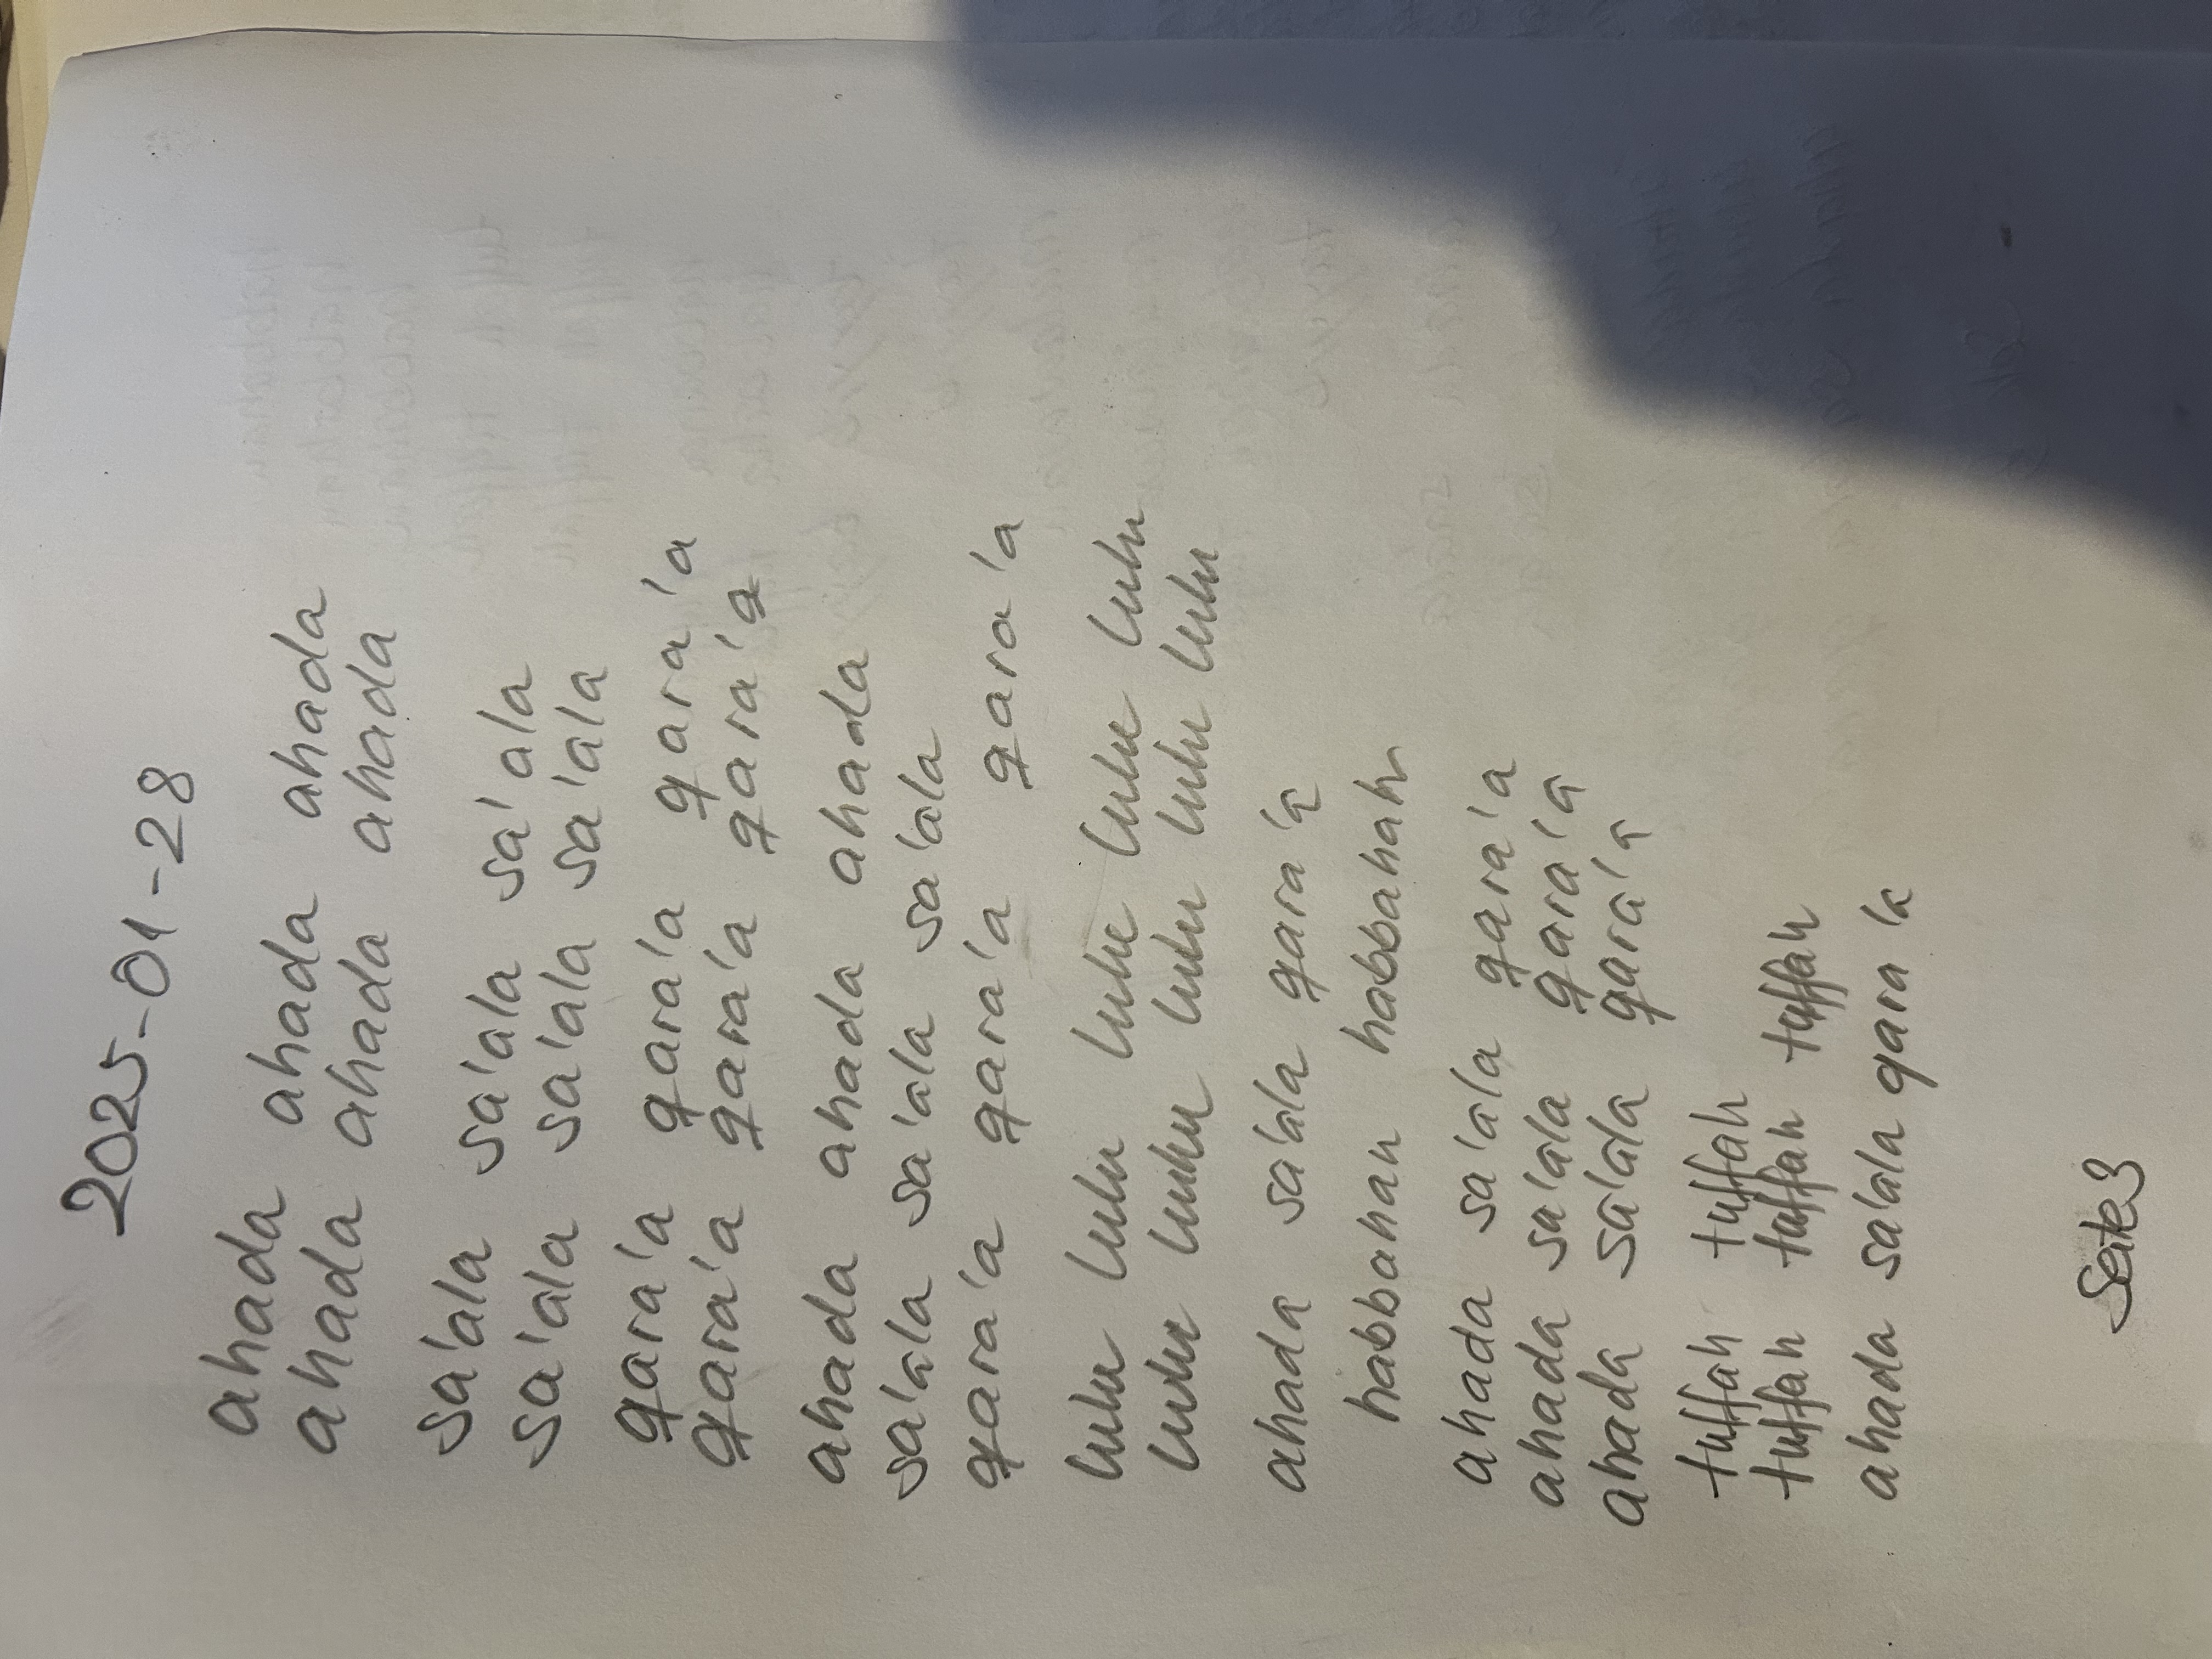 2025-01-28
ahada ahada ahada
ahada ahada ahada
sa'ala sa'ala sa'ala
sa'ala sa'ala sa'ala
qara'a qara'a qara'a
qara'a qara'a qara'a
ahada ahada ahada
sa'ala sa'ala sa'ala
qara'a qara'a qara'a
lulu lulu lulu lulu lulu
lulu lulu lulu lulu lulu
ahada sa'ala qara'a
habbahan habbahah
ahada sa'ala qara'a
ahada sa'ala qara'a
ahada sa'ala qara'a
tuffah tuffah
tuffah tuffah tuffah
ahada sa'ala qara'a
Seite 3